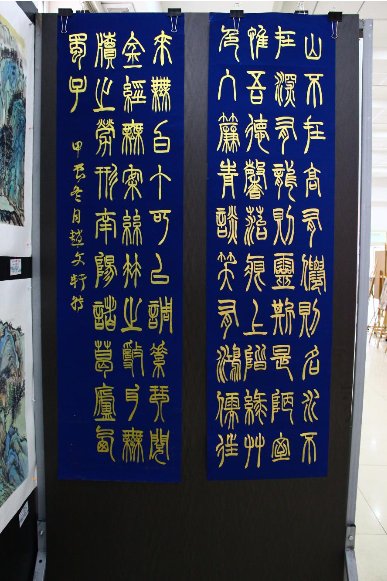 山不在高有僊則名水不
在深有龍則靈斯是陋室
惟吾德馨菭痕上階綠艸
色入簾青談笑有鴻儒往
來無白丁可以調素琴閱
金經無案絲竹之亂耳無
牘之勞形南陽諸葛廬西
蜀子
甲辰冬月趙文